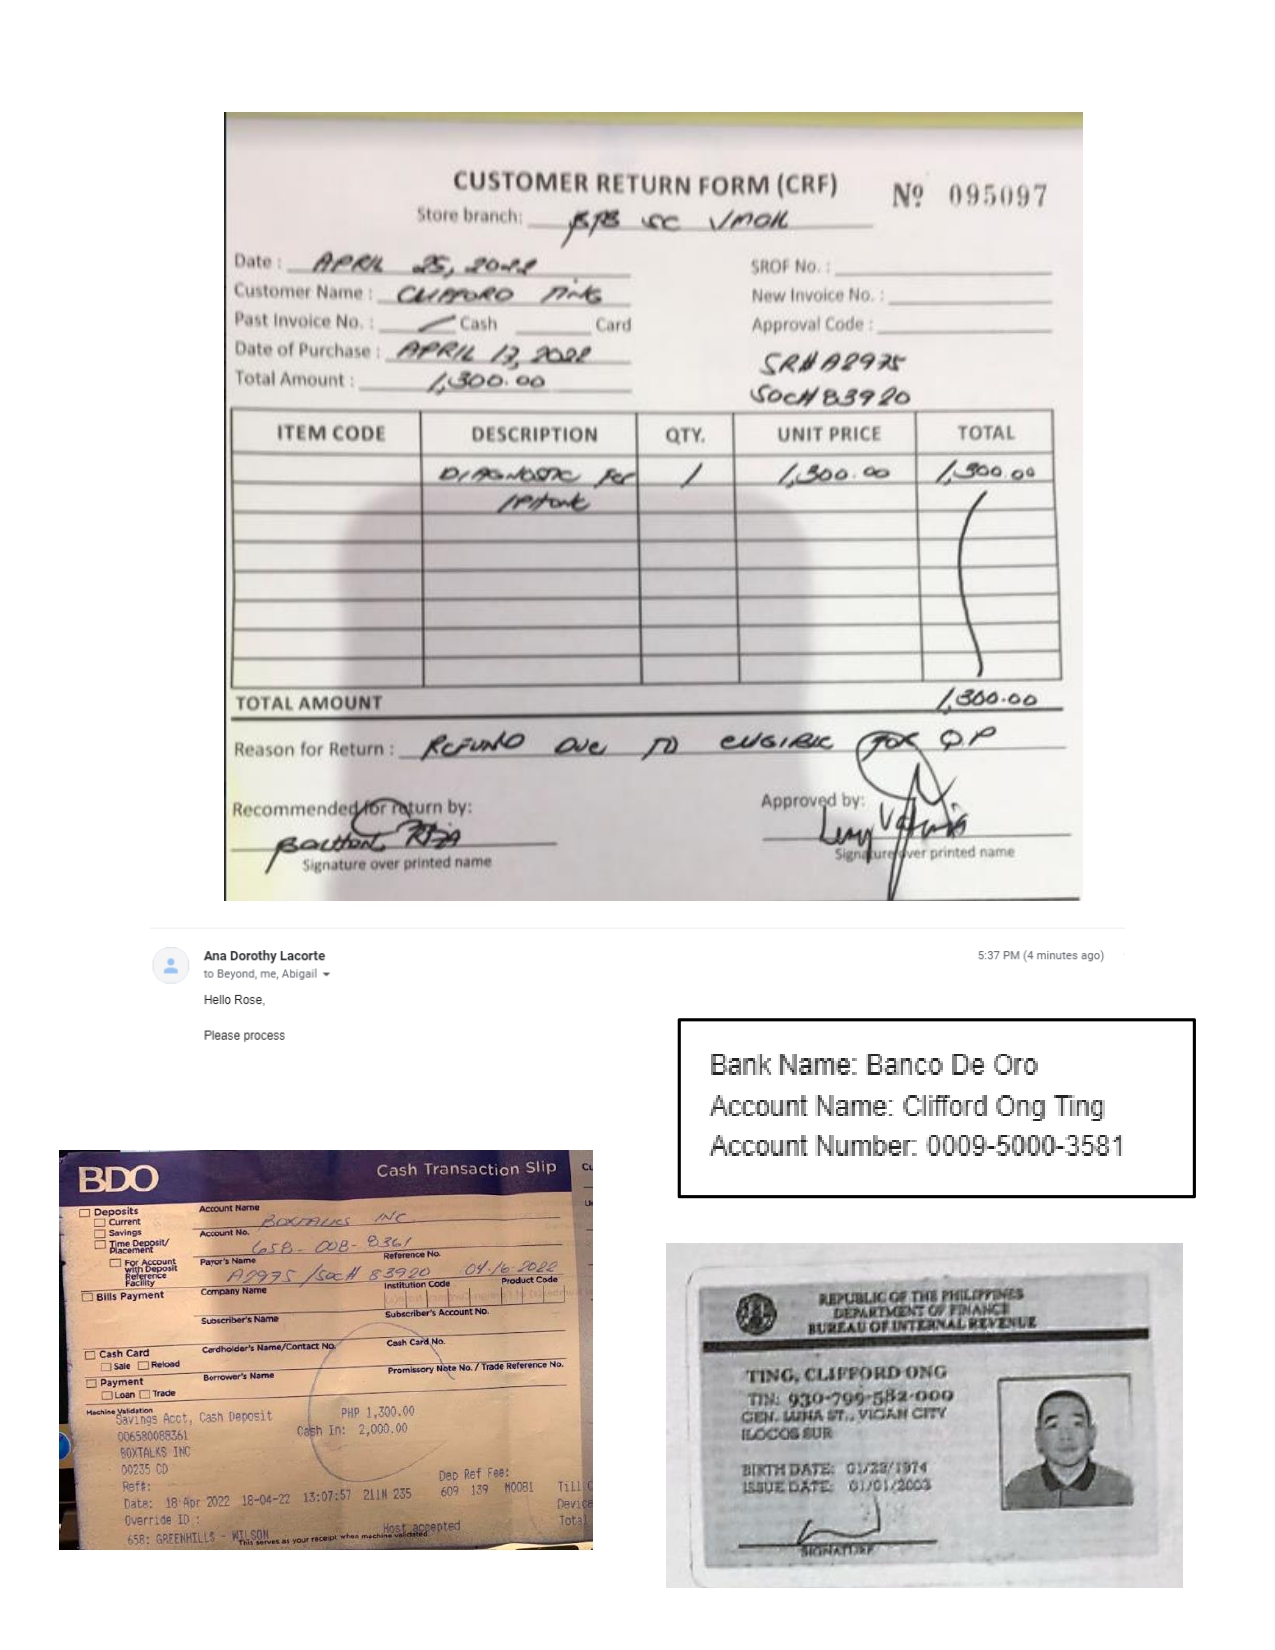 CUSTOMER RETURN FORM (CRF)
Nº 095097
Store branch: BTB SC VMALL
Date : APRIL 25, 2022
SROF No. :
Customer Name : CLIFFORD TING
New Invoice No. :
Past Invoice No. : Cash Card
Approval Code :
Date of Purchase : APRIL 13, 2022
SR# A2975
Total Amount : 1,300.00
SOC# 83920
ITEM CODE DESCRIPTION QTY. UNIT PRICE TOTAL
DIAGNOSTIC FEE 1 1,300.00 1,300.00
IPHONE
TOTAL AMOUNT 1,300.00
Reason for Return : REFUND DUE TO ELIGIBLE FOR QP
Recommended for return by:
Approved by:
Signature over printed name
Signature over printed name
Ana Dorothy Lacorte
5:37 PM (4 minutes ago)
to Beyond, me, Abigail
Hello Rose,
Please process
Bank Name: Banco De Oro
Account Name: Clifford Ong Ting
Account Number: 0009-5000-3581
BDO
Cash Transaction Slip
Deposits
Current
Savings
Time Deposit/
Placement
For Account
with Deposit
Reference
Facility
Bills Payment
Cash Card
Sale Reload
Payment
Loan Trade
Account Name
BOXTALKS INC
Account No.
658-008-8361
Payor's Name Reference No.
A2975 /SOC# 83920 04-16-2022
Company Name Institution Code Product Code
Subscriber's Name Subscriber's Account No.
Cardholder's Name/Contact No. Cash Card No.
Borrower's Name Promissory Note No. / Trade Reference No.
Machine Validation
Savings Acct, Cash Deposit PHP 1,300.00
006580088361 Cash In: 2,000.00
BOXTALKS INC
00235 CD
Ref#: Dep Ref Fee:
Date: 18 Apr 2022 18-04-22 13:07:57 211N 235 609 139 M0081 Till
Override ID : Host accepted Total
658: GREENHILLS - WILSON
This serves as your receipt when machine validated.
REPUBLIC OF THE PHILIPPINES
DEPARTMENT OF FINANCE
BUREAU OF INTERNAL REVENUE
TING, CLIFFORD ONG
TIN: 930-799-582-000
GEN. LUNA ST., VIGAN CITY
ILOCOS SUR
BIRTH DATE: 01/28/1974
ISSUE DATE: 01/01/2003
SIGNATURE